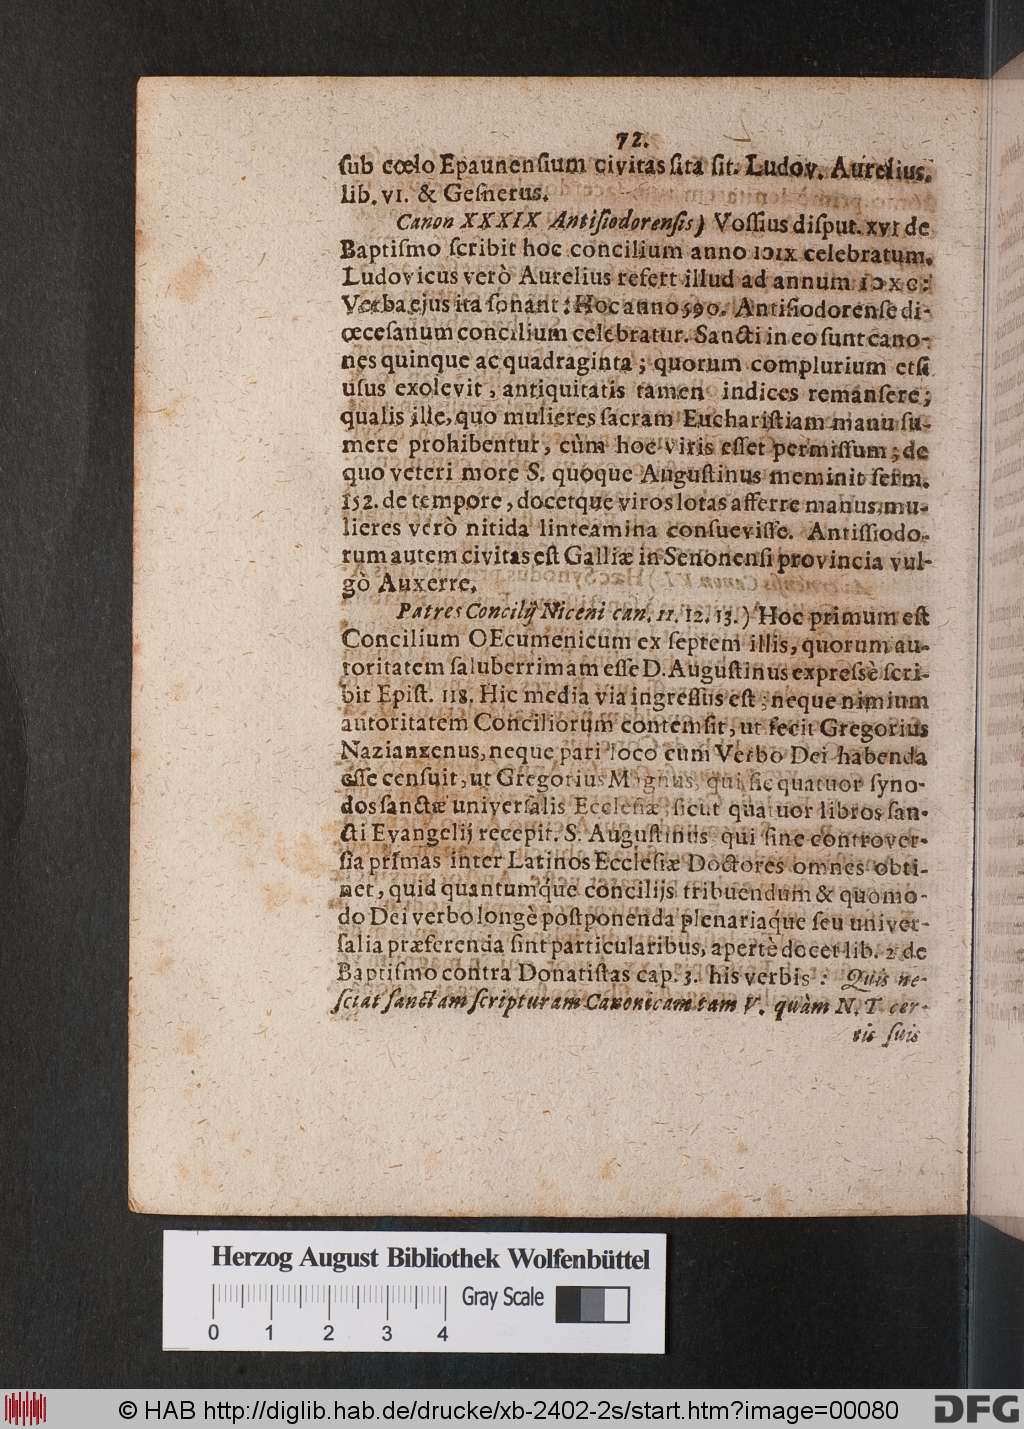 72.
ſub cœlo Epaunenſium civitas ſita ſit. Ludov. Aurelius.
lib. VI. & Geſnerus.
Canon XXXIX Antiſiodorenſis) Voſſius diſput. XVI de
Baptiſmo ſcribit hoc concilium anno IↃIX celebratum.
Ludovicus verò Aurelius refert illud ad annum IↃXC:
Verba ejus ita ſonant: Hoc anno 590. Antiſiodorenſe di-
œceſanum concilium celebratur. Sancti in eo ſunt cano-
nes quinque ac quadraginta; quorum complurium etſi
uſus exolevit, antiquitatis tamen indices remanſere;
qualis ille, quo mulieres ſacram Euchariſtiam manu ſu-
mere prohibentur, cùm hoc viris eſſet permiſſum; de
quo veteri more S. quoque Auguſtinus meminit ſerm.
152. de tempore, docetque viros lotas afferre manus, mu-
lieres verò nitida linteamina conſueviſſe. Antiſſiodo-
rum autem civitas eſt Galliæ in Senonenſi provincia vul-
gò Auxerre.
Patres Concilij Niceni can. 11. 12. 13.) Hoc primum eſt
Concilium OEcumenicum ex ſeptem illis, quorum au-
toritatem ſaluberrimam eſſe D. Auguſtinus expreſsè ſcri-
bit Epiſt. 118. Hic media via ingreſſus eſt; neque nimium
autoritatem Conciliorum contemſit, ut fecit Gregorius
Nazianzenus, neque pari loco cum Verbo Dei habenda
eſſe cenſuit, ut Gregorius Magnus, qui ſic quatuor ſyno-
dos ſanctæ univerſalis Eccleſiæ, ſicut quatuor libros ſan-
cti Evangelij recepit. S. Auguſtinus qui ſine controver-
ſia primas inter Latinos Eccleſiæ Doctores omnes obti-
net, quid quantumq́ue concilijs tribuendum & quomo-
do Dei verbo longè poſtponenda plenariaq́ue ſeu univer-
ſalia præferenda ſint particularibus, apertè docet lib. 2. de
Baptiſmo contra Donatiſtas cap. 3. his verbis: Quis ne-
ſciat ſanctam ſcripturam Canonicam tam V. quàm N. T. cer-
tis ſuis
Herzog August Bibliothek Wolfenbüttel
Gray Scale
0 1 2 3 4
© HAB http://diglib.hab.de/drucke/xb-2402-2s/start.htm?image=00080
DFG